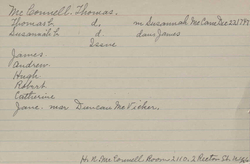 Mc Connell, Thomas.
Thomas d. m Susannah McCane Dec 23, 179
Susannah d. dau James
Issue
James
Andrew
Hugh
Robert
Catherine
Jane mar Duncan McVicker
H. R. McConnell Room 2110. 2 Rector St.